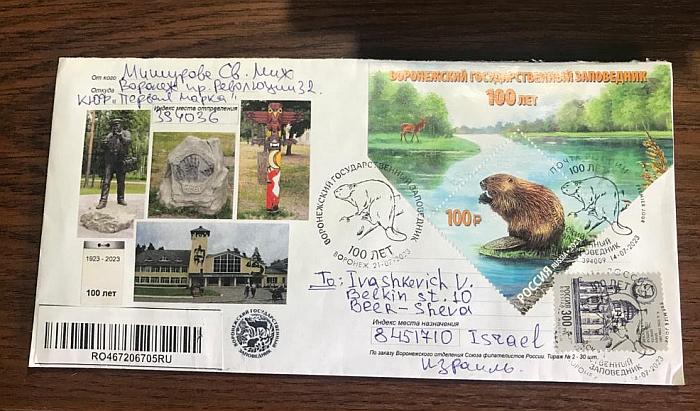 От кого Мишурова Св. Мих
Откуда Воронеж пр. Революции 32
КЮФ "Первая марка"
Индекс места отправления
394036
1923 - 2023
100 лет
RO467206705RU
ВОРОНЕЖСКИЙ ГОСУДАРСТВЕННЫЙ ЗАПОВЕДНИК
ВОРОНЕЖСКИЙ ГОСУДАРСТВЕННЫЙ ЗАПОВЕДНИК
100 ЛЕТ
100₽
РОССИЯ
ВОРОНЕЖСКИЙ ГОСУДАРСТВЕННЫЙ ЗАПОВЕДНИК
100 ЛЕТ
ВОРОНЕЖ 21-07-2023
ПОЧТА
100 ЛЕТ
394009 14-07-2023
ЗАПОВЕДНИК
To: Ivashkevich V.
Belkin st. 10
BEER-Sheva
Индекс места назначения
8451710 Israel
По заказу Воронежского отделения Союза филателистов России. Тираж № 2 - 30 шт.
Израиль.
300
ЗАПОВЕДНИК
14-07-2023